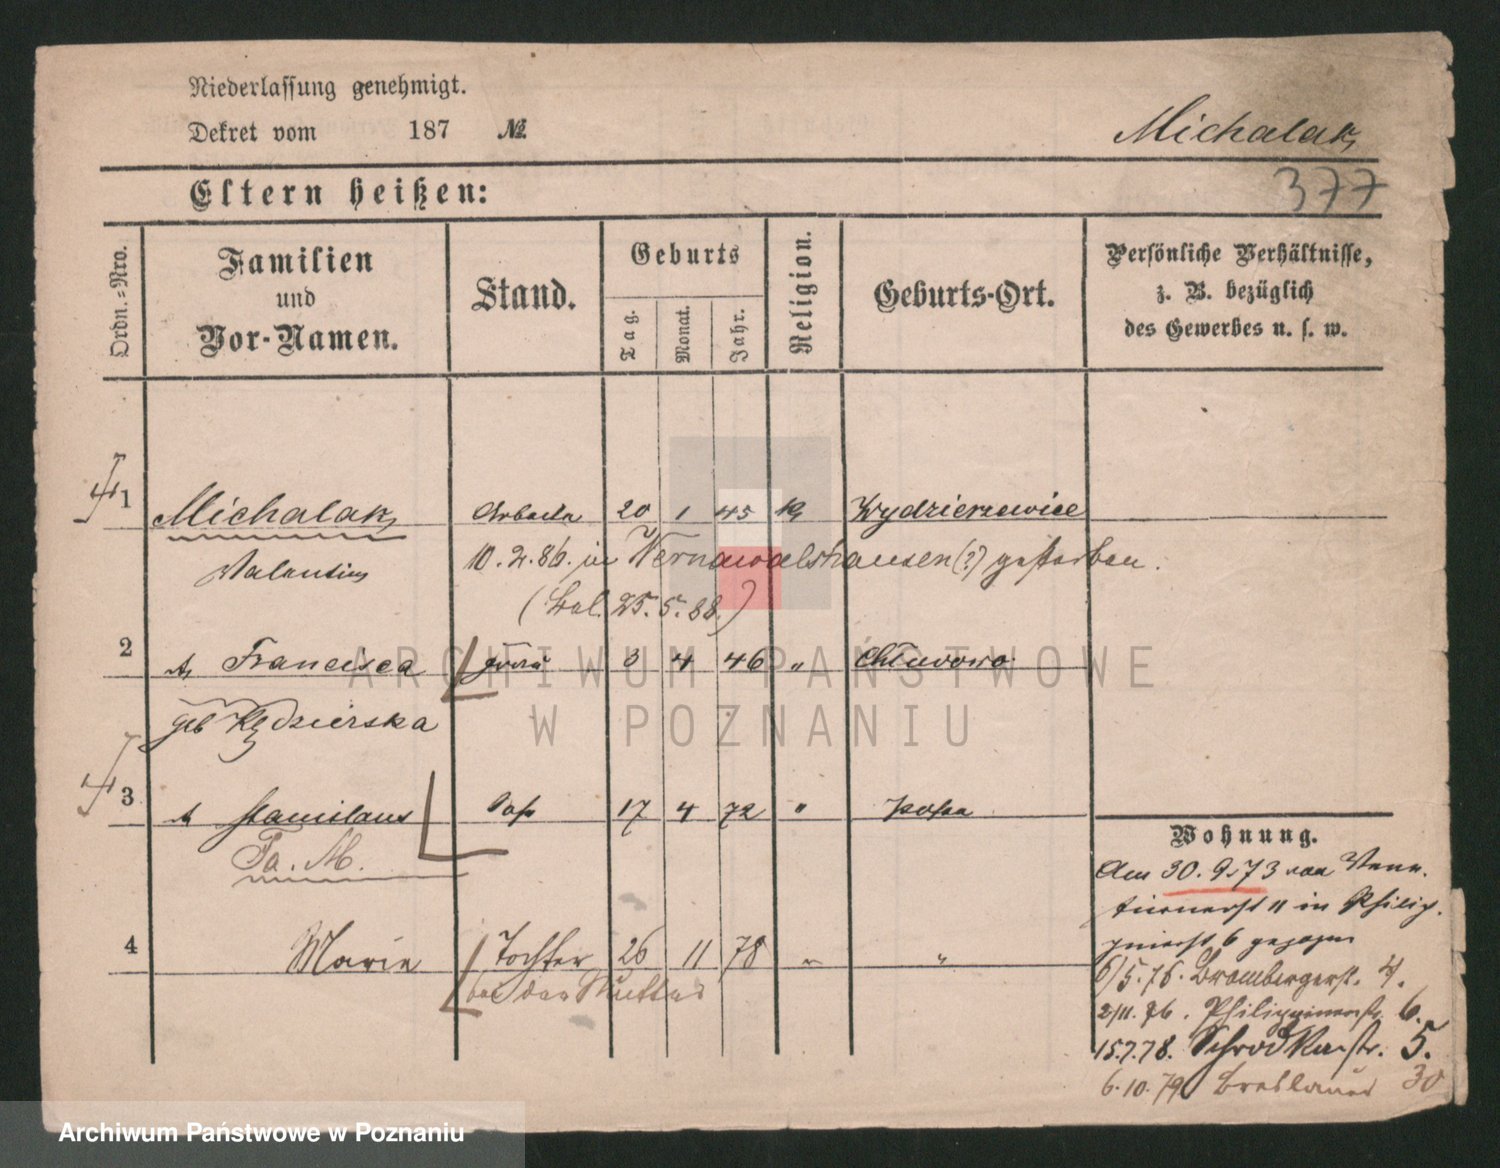 Niederlassung genehmigt.
Dekret vom 187 №
Michalak
377
Eltern heißen:
Ordn.=Nro.
Familien
und
Vor-Namen.
Stand.
Geburts
Tag.
Monat.
Jahr.
Religion.
Geburts-Ort.
Persönliche Verhältnisse,
z. B. bezüglich
des Gewerbes u. s. w.
1 Michalak 20 1 45 Wydzierzewice
Valentin 10. 2. 86. in Wernawalshausen (?) gestorben.
25. 5. 88.)
2 Francisca Frau 3 4 46 " Chlewowo
geb Kędzierska
3 Stanislaus Sohn 17 4 72 " Posen
Fa. M.
4 Marie Tochter 26 11 78 " "
bei der Mutter
Wohnung.
Am 30. 9. 73 von
11 in
6 gezogen
6/5. 76. Brombergerst. 4.
2/11. 76. Philippinenstr. 6.
15.7.78. Schrodkastr. 5.
6.10.79 Breslauer 30
ARCHIWUM PAŃSTWOWE
W POZNANIU
Archiwum Państwowe w Poznaniu